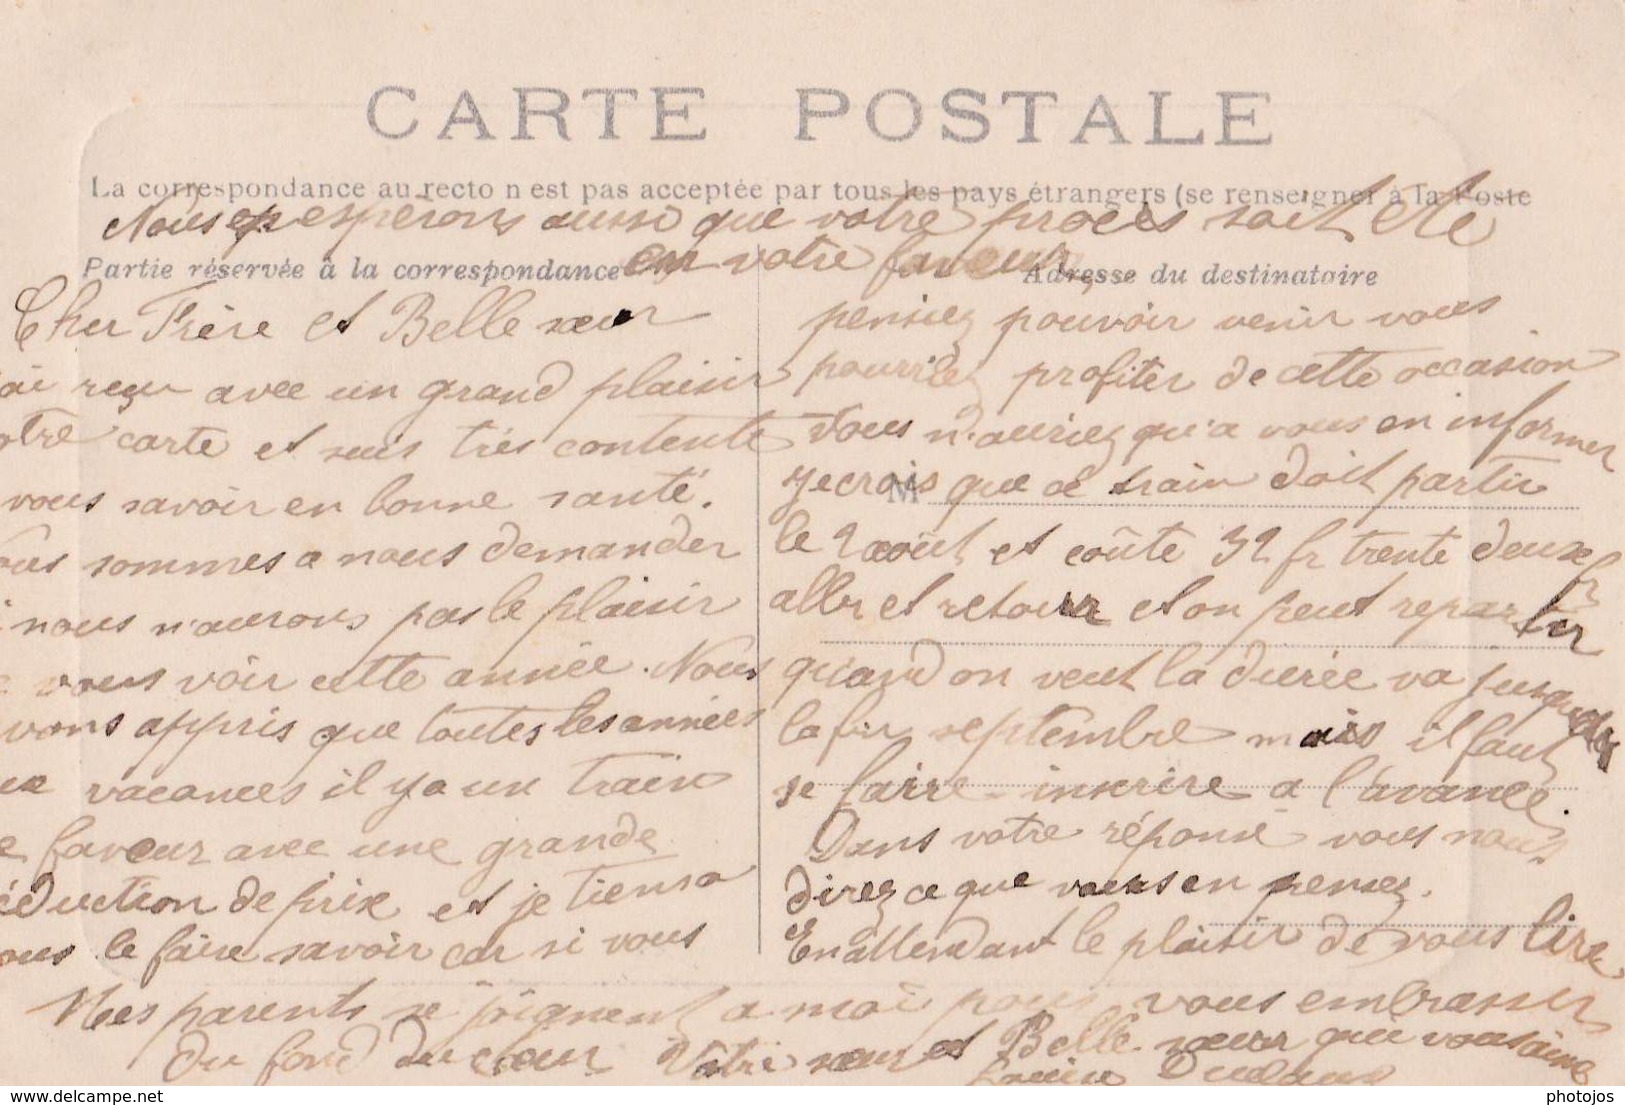 CARTE POSTALE
La correspondance au recto n'est pas acceptée par tous les pays étrangers (se renseigner à la Poste
Nous espérons aussi que votre procès soit été
en votre faveur
Partie réservée à la correspondance
Adresse du destinataire
Cher Frère et Belle sœur
ai reçu avec un grand plaisir
otre carte et suis très contente
vous savoir en bonne santé.
ous sommes a nous demander
i nous n'aurons pas le plaisir
e vous voir cette année. Nous
vons appris que toutes les années
ux vacances il y a un train
e faveur avec une grande
éduction de prix et je tiens a
ous le faire savoir car si vous
pensiez pouvoir venir vous
pourriez profiter de cette occasion
Vous n'auriez qu'a vous en informer
M
je crois que ce train doit partir
le 2 août et coûte 32 fr trente deux fr
aller et retour et on peut repartir
quand on veut la durée va jusqu'
la fin septembre mais il faut
se faire inscrire a l'avance.
Dans votre réponse vous nous
direz ce que vous en pensez.
En attendant le plaisir de vous lire
Mes parents se joignent a moi pour vous embrasser
du fond du cœur Votre sœur et Belle sœur que vous aime
delcampe.net
photojos